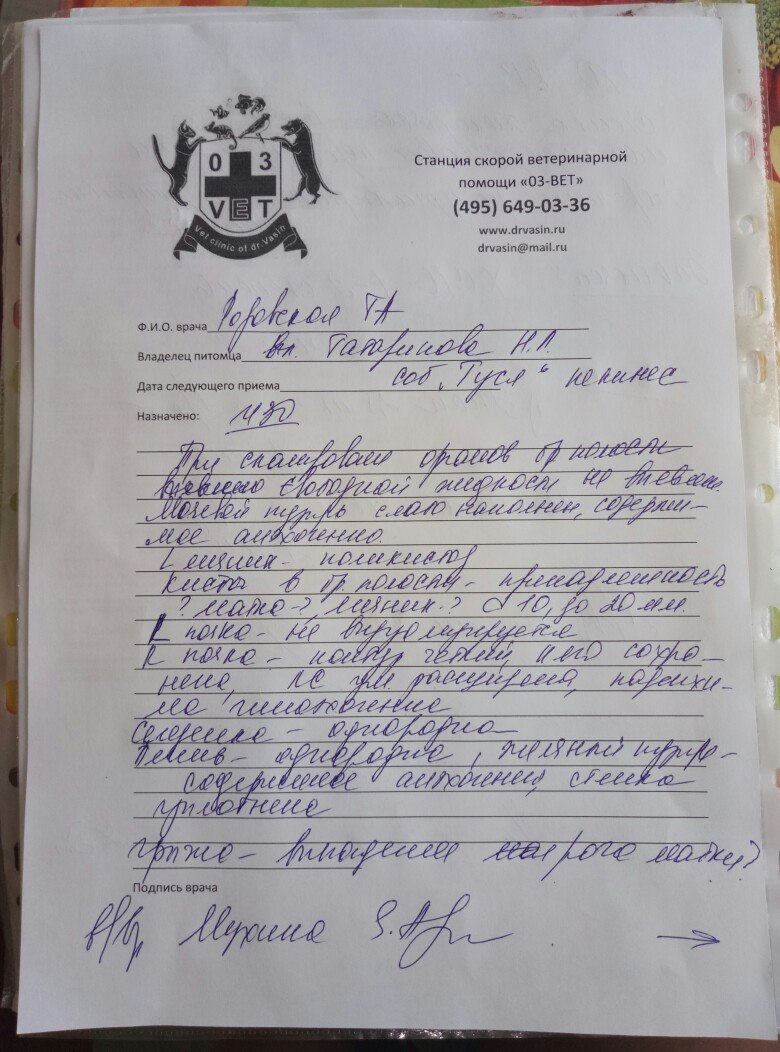 03
VET
Vet clinic of dr.Vasin
Станция скорой ветеринарной
помощи «03-ВЕТ»
(495) 649-03-36
www.drvasin.ru
drvasin@mail.ru
Ф.И.О. врача ТА
Владелец питомца вл. Татаринова Н.Л.
Дата следующего приема соб „Туся“ пекинес
Назначено: УЗИ
При сканировании органов бр полости
свободной жидкости не выявлен.
Мочевой пузырь слабо наполнен, содержи-
мое анэхогенно.
L яичник - поликистоз
Кисты в бр. полости - принадлежность
? матка-? яичник-? d 10, до 20 мм.
L почка - не визуализируется
R почка - контур четкий, КМД сохра-
нена, ЛС ум. расширена, паренхи-
ма гипоэхогенна
Селезенка - однородна
Печень - однородна, желчный пузырь-
содержимое анэхогенное, стенка
уплотнена
грыжа - выпадение рога матки?
Подпись врача
в/вр